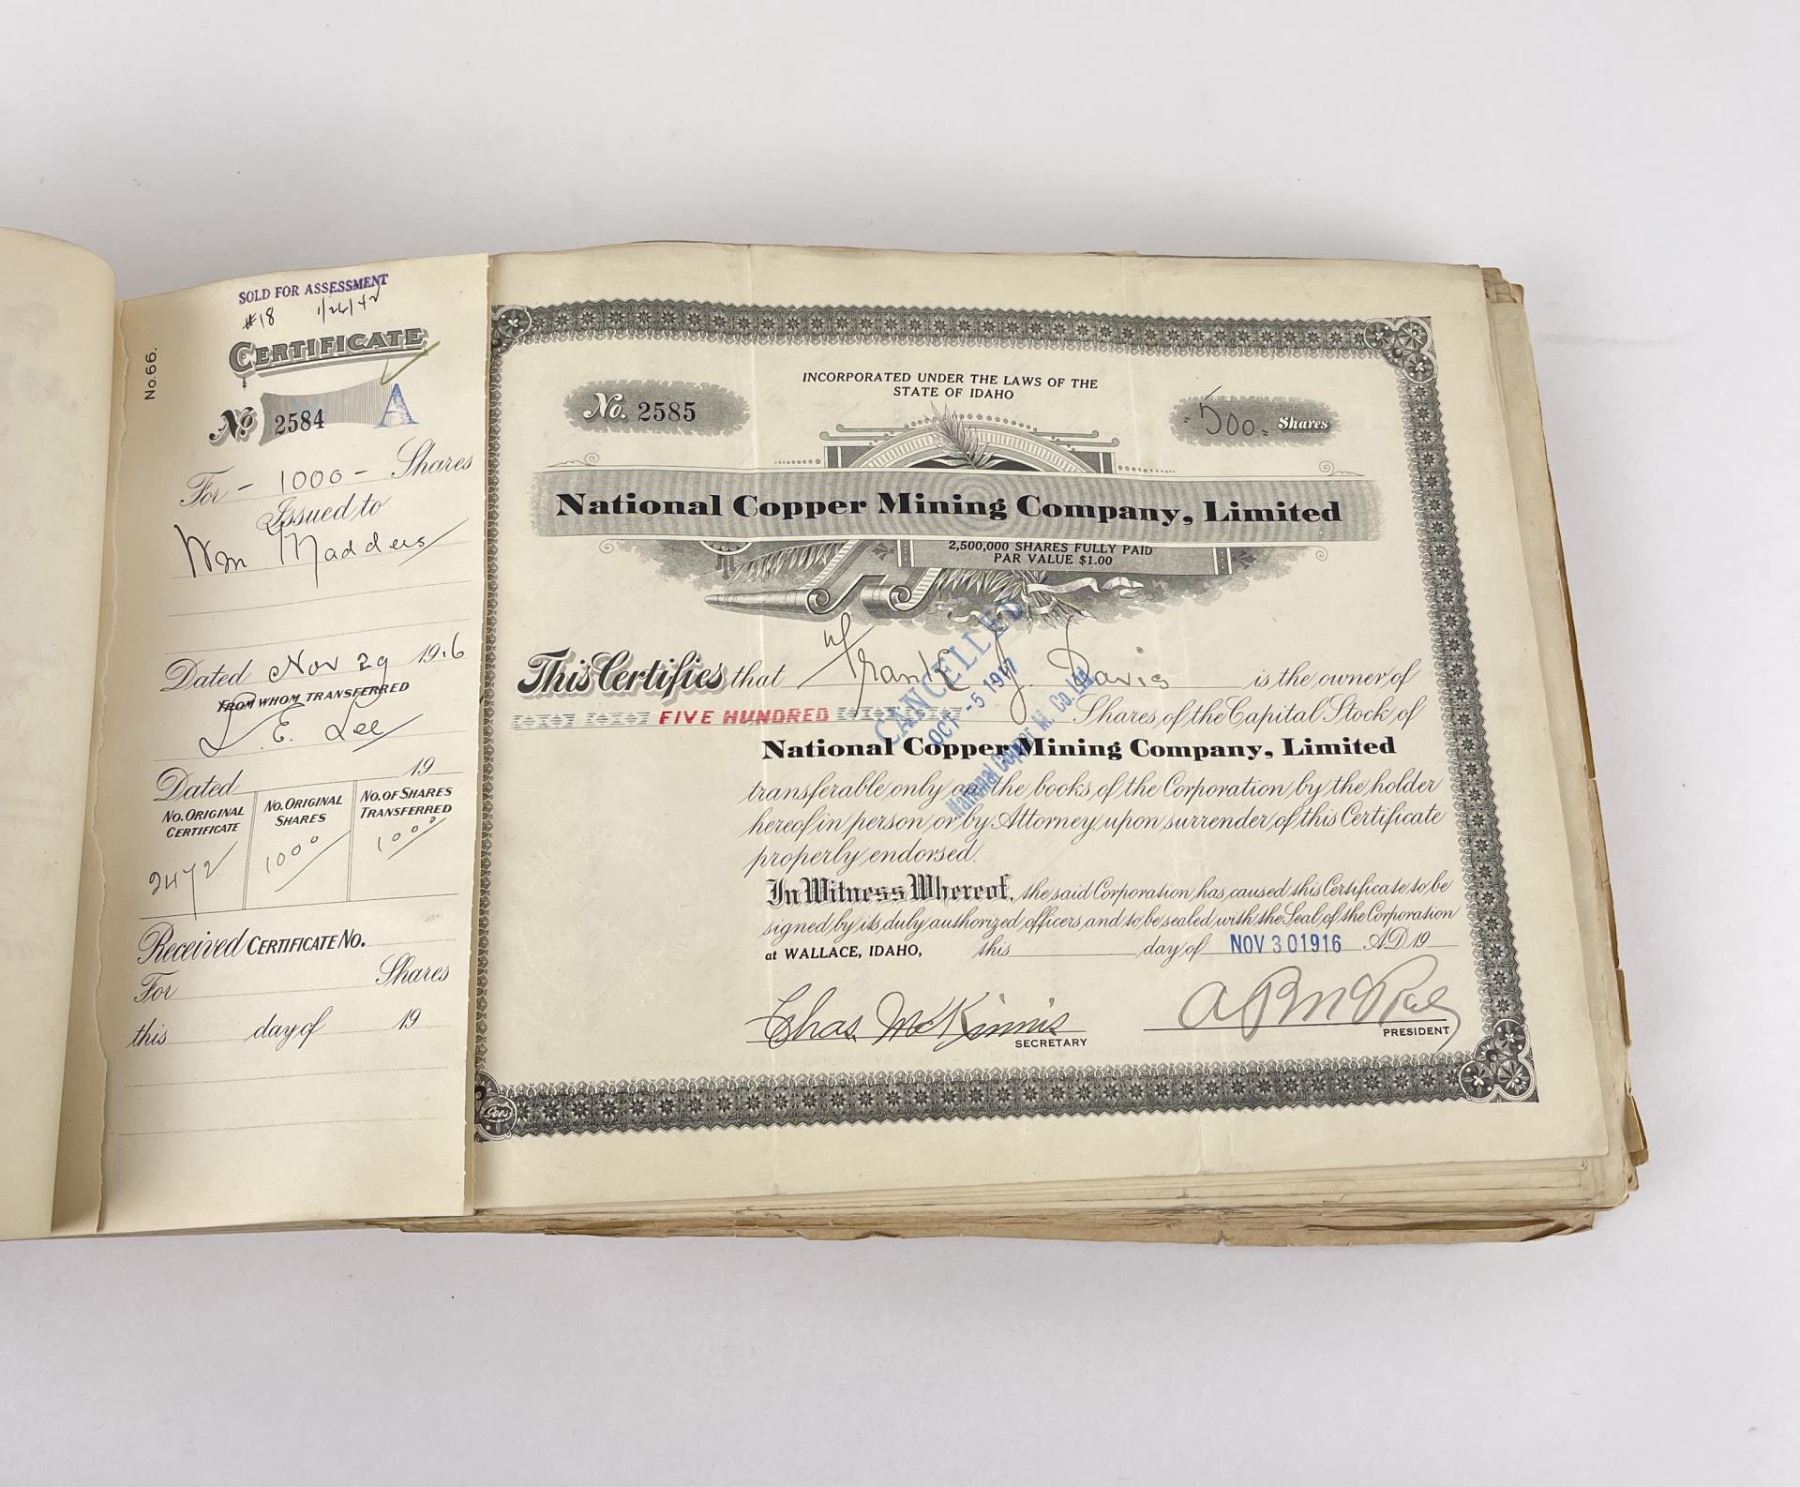 SOLD FOR ASSESSMENT
#18 1/26/42
CERTIFICATE
No. 66.
No 2584 A
For - 1000 - Shares
Issued to
Wm Madders
Dated Nov 29 1916
FROM WHOM TRANSFERRED
L. E. Lee
Dated 19
No. ORIGINAL CERTIFICATE
No. ORIGINAL SHARES
No. OF SHARES TRANSFERRED
2472 1000 1000
Received CERTIFICATE No.
For Shares
this day of 19
INCORPORATED UNDER THE LAWS OF THE
STATE OF IDAHO
No. 2585
500 Shares
National Copper Mining Company, Limited
2,500,000 SHARES FULLY PAID
PAR VALUE $1.00
This Certifies that Frank J. Davis is the owner of
FIVE HUNDRED Shares of the Capital Stock of
National Copper Mining Company, Limited
transferable only on the books of the Corporation by the holder
hereof in person or by Attorney upon surrender of this Certificate
properly endorsed.
In Witness Whereof, the said Corporation has caused this Certificate to be
signed by its duly authorized officers and to be sealed with the Seal of the Corporation
at WALLACE, IDAHO, this day of NOV 30 1916 A.D. 19
Chas. McKinnis
SECRETARY
PRESIDENT
CANCELLED
OCT -5 1917
National Copper M. Co. Ltd.
Goes